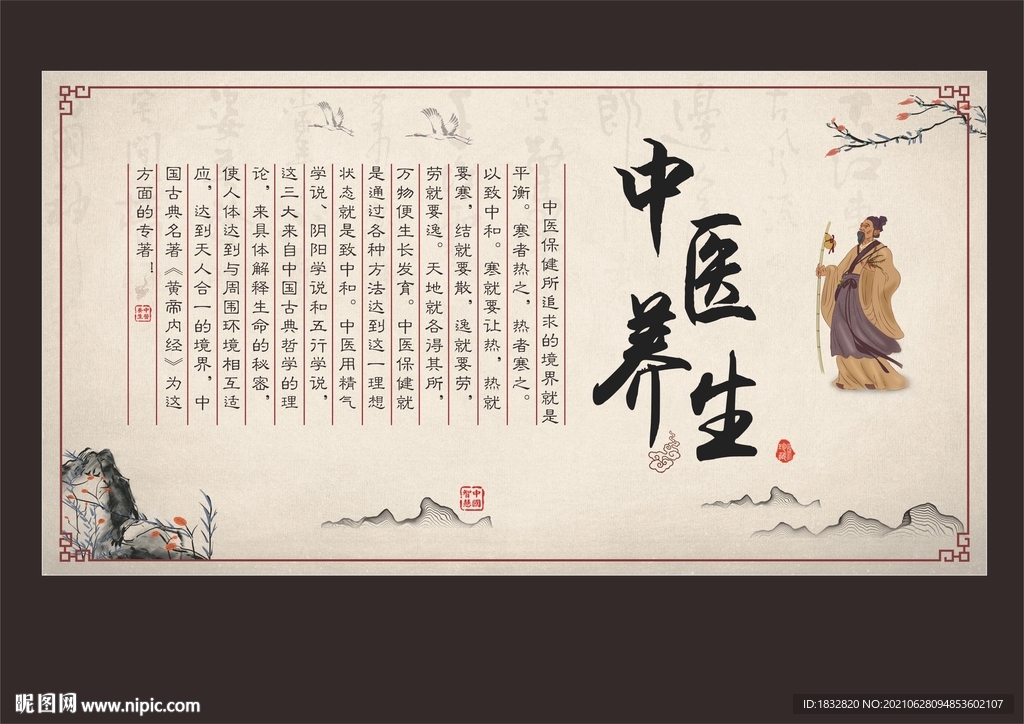 中医养生
中医保健所追求的境界就是
平衡。寒者热之，热者寒之。
以致中和。寒就要让热，热就
要寒，结就要散，逸就要劳，
劳就要逸。天地就各得其所，
万物便生长发育。中医保健就
是通过各种方法达到这一理想
状态就是致中和。中医用精气
学说、阴阳学说和五行学说，
这三大来自中国古典哲学的理
论，来具体解释生命的秘密，
使人体达到与周围环境相互适
应，达到天人合一的境界，中
国古典名著《黄帝内经》为这
方面的专著！
中医养生
中国智慧
昵图网 www.nipic.com
ID:1832820 NO:20210628094853602107